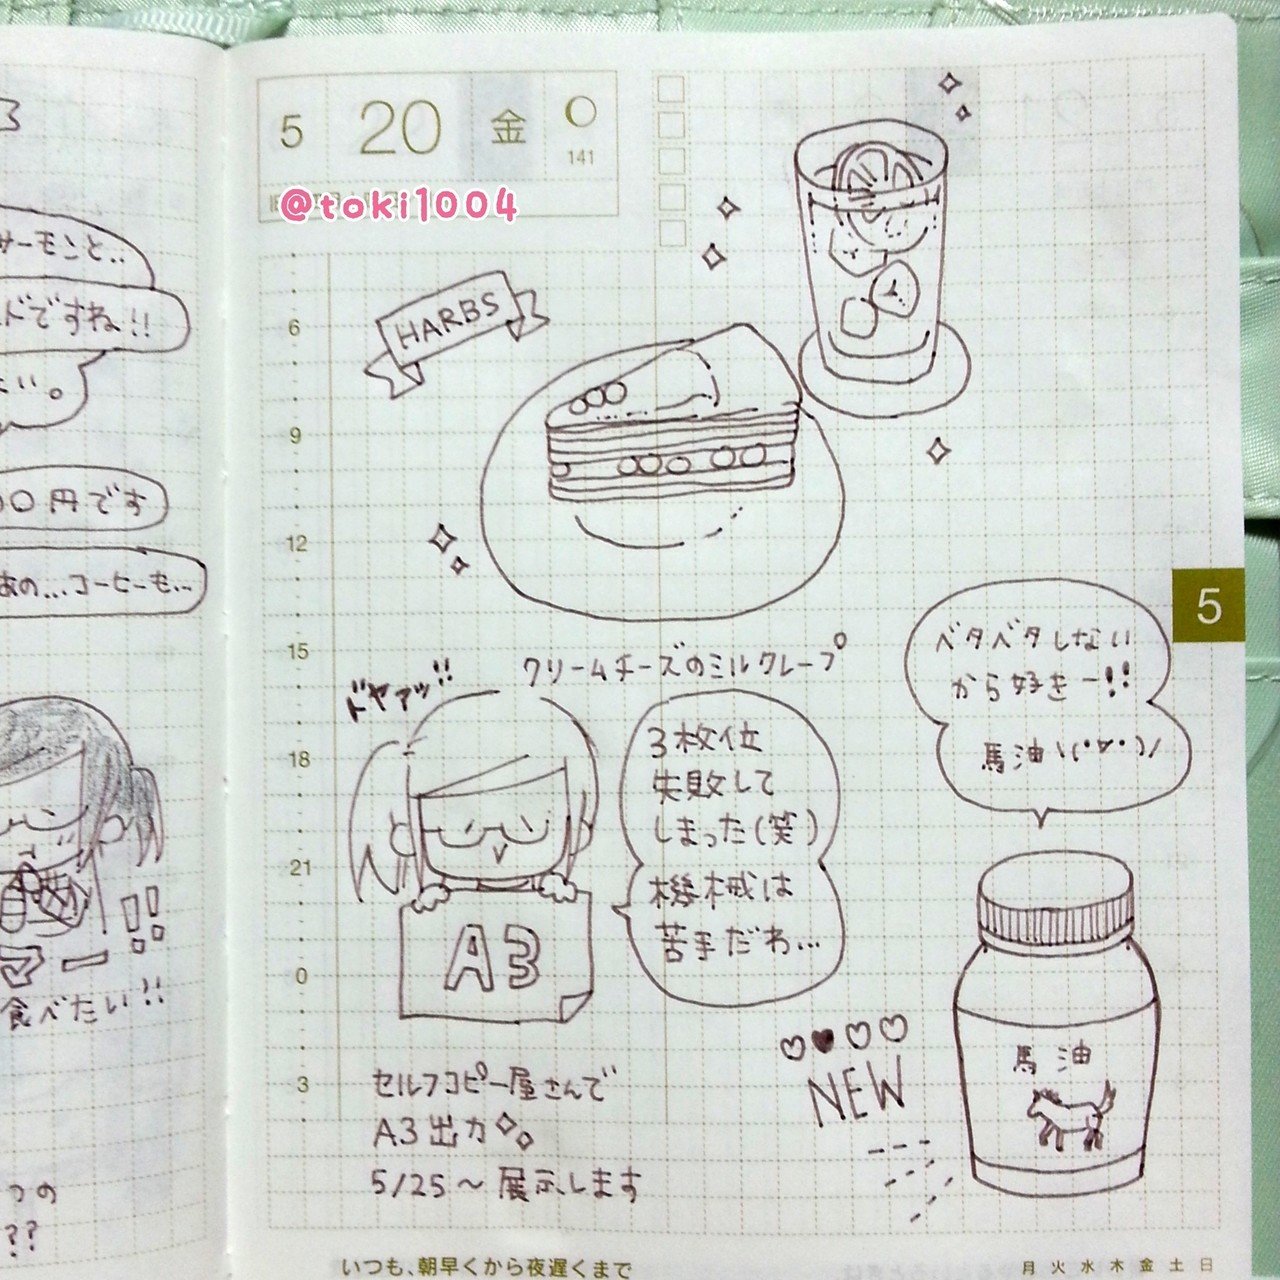 サーモンと..
ドですね!!
い。
00円です
あの...コーヒーも...
食べたい!!
つの
??
5 20 金
141
@toki1004
HARBS
6
9
12
15
18
21
0
3
クリームチーズのミルクレープ
ドヤァッ!!
3枚位
失敗して
しまった(笑)
機械は
苦手だわ...
A3
セルフコピー屋さんで
A3出力
5/25〜展示します
5
ベタベタしない
から好きー!!
馬油\(・∀・)/
馬油
NEW
いつも、朝早くから夜遅くまで
月 火 水 木 金 土 日